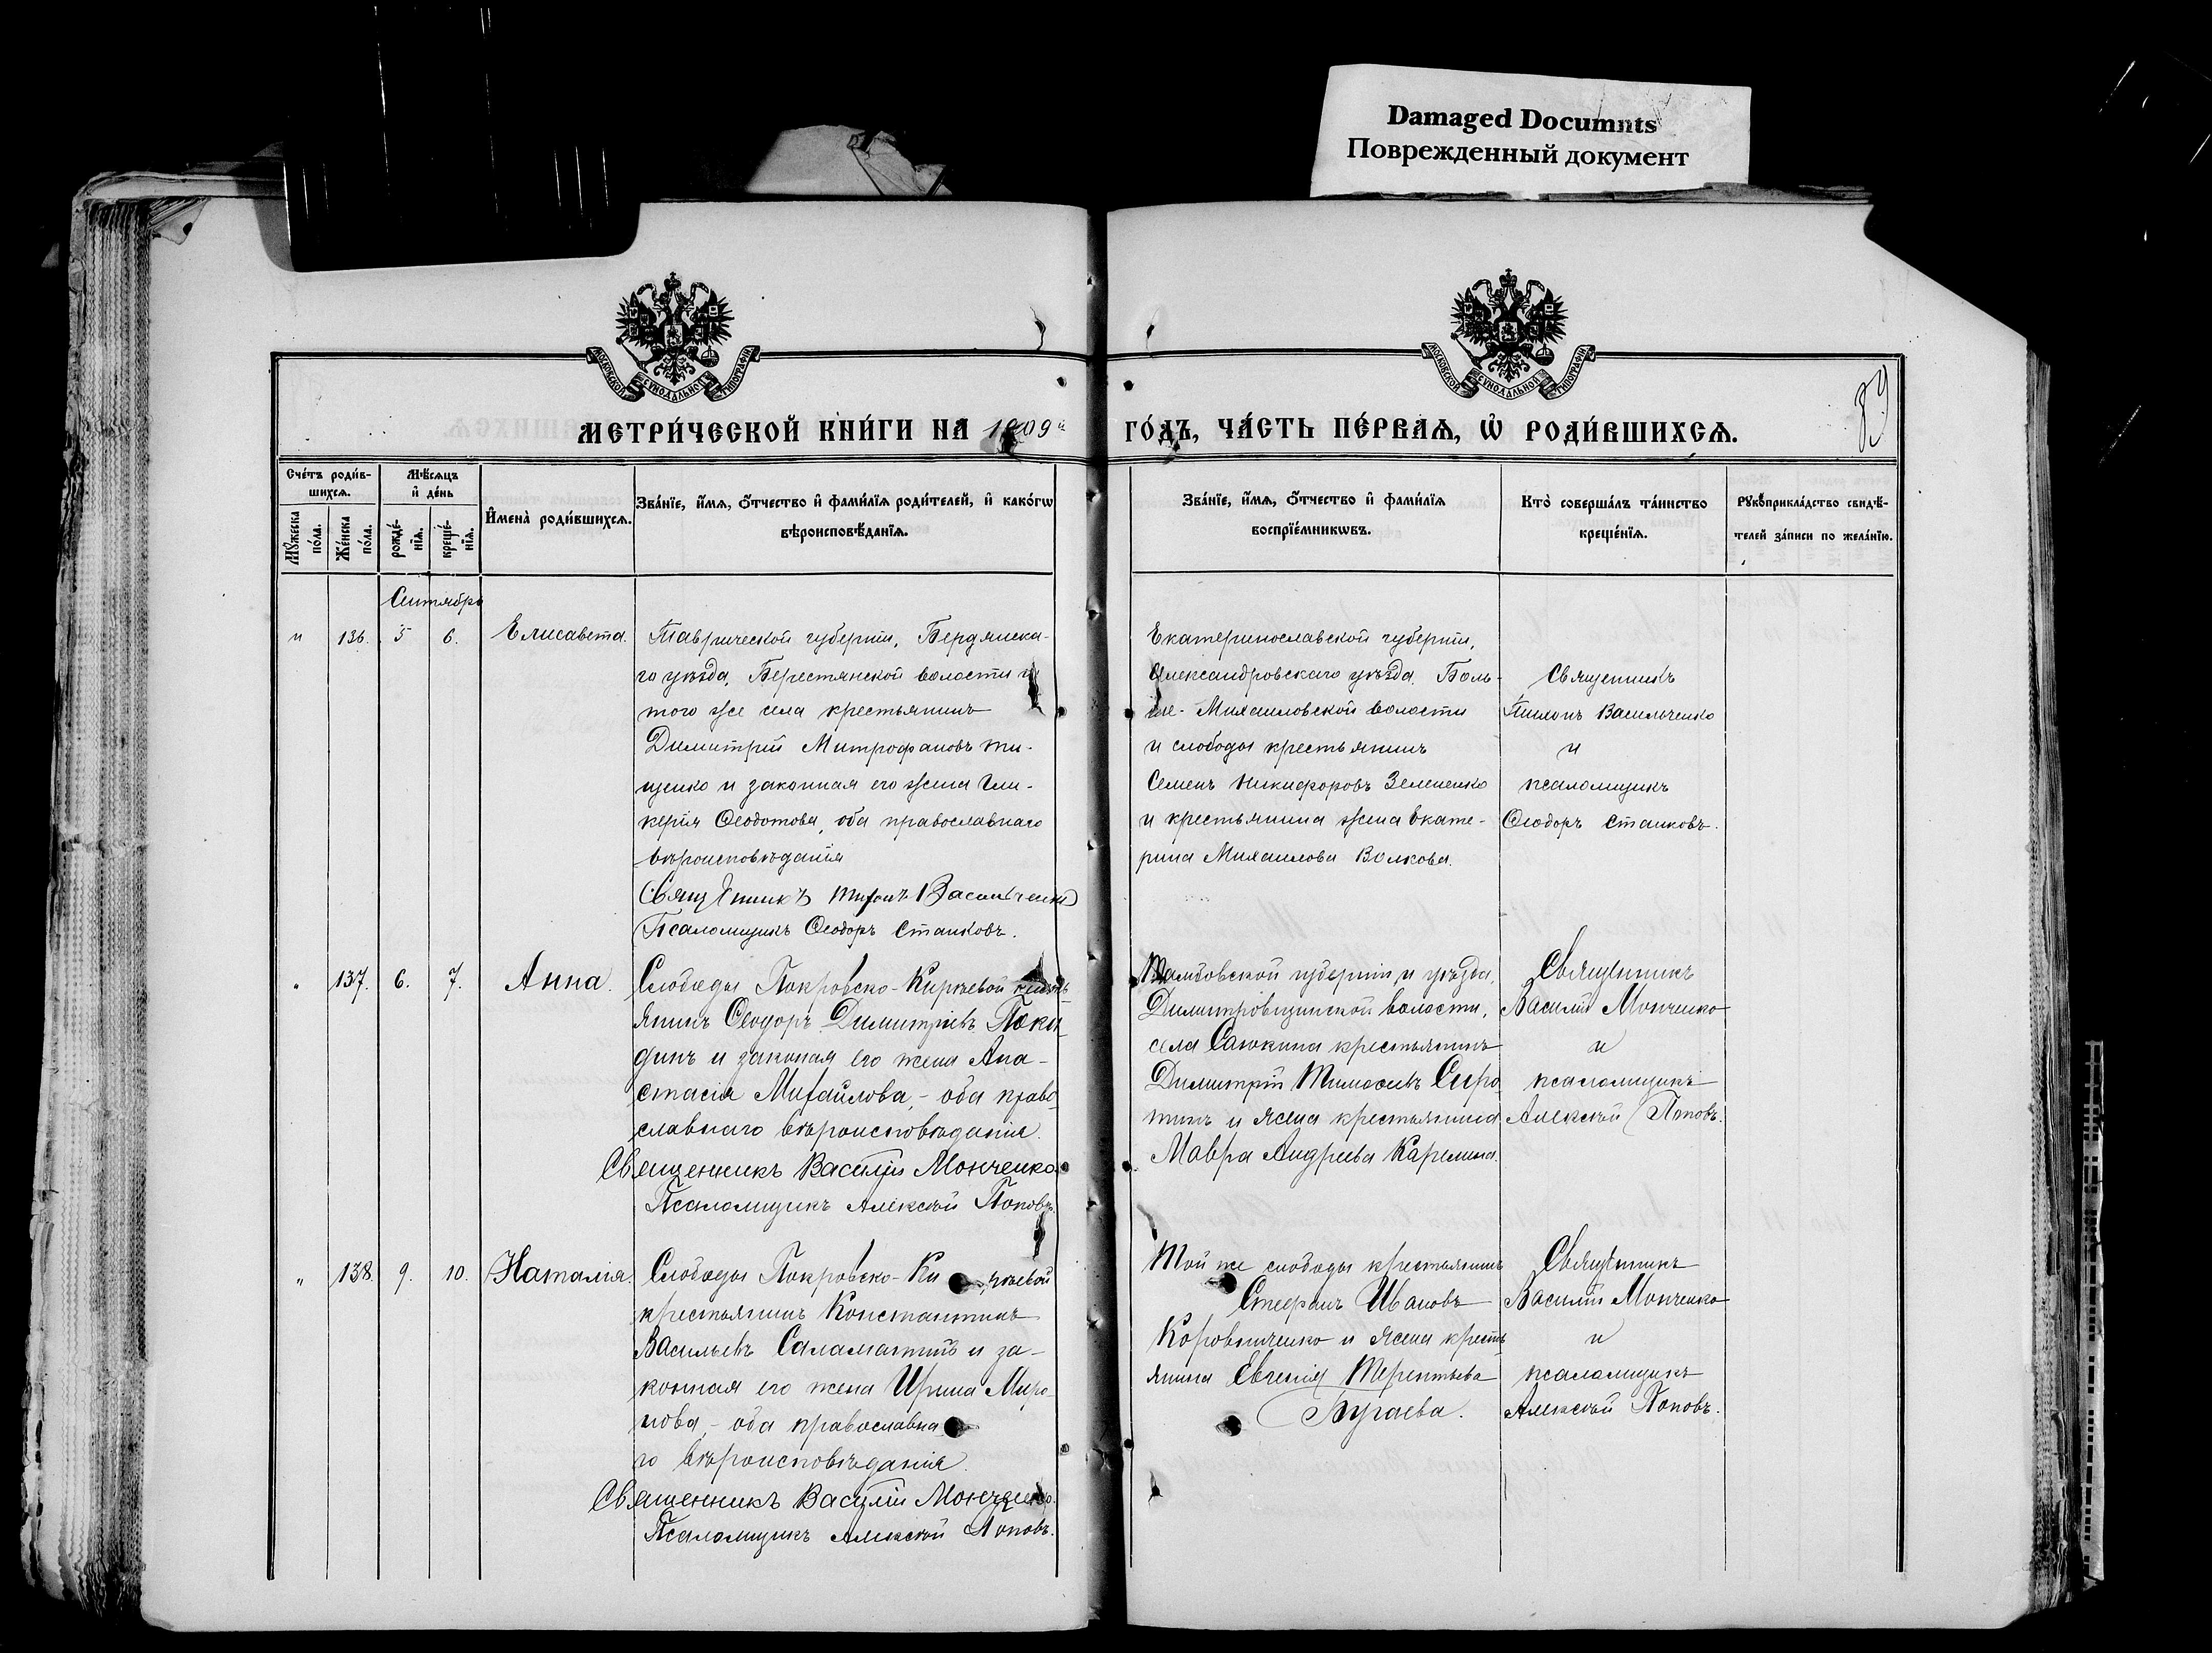 Damaged Documnts
Поврежденный документ
МОСКОВСКОЙ СѴНОДАЛЬНОЙ ТИПОГРАФІИ
МОСКОВСКОЙ СѴНОДАЛЬНОЙ ТИПОГРАФІИ
89
МЕТРИ́ЧЕСКОЙ КНИ́ГИ НА 1909й
ГО́ДЪ, ЧА́СТЬ ПЕ́РВАѦ, Ѡ РОДИ́ВШИХСѦ.
Сче́тъ роди́в-
шихсѧ.
Мꙋ́жеска по́ла.
Же́нска по́ла.
Мѣ́сѧцъ и де́нь
рожде́-нїѧ.
креще́-нїѧ.
Имена̀ роди́вшихсѧ.
Зва́нїе, и́мѧ, ѻ́тчество и фами́лїѧ роди́телей, и како́гѡ
вѣроисповѣ́данїѧ.
Зва́нїе, и́мѧ, ѻ́тчество и фами́лїѧ
воспрїе́мникѡвъ.
Кто̀ соверша́лъ та́инство
креще́нїѧ.
Рꙋкоприкла́дство свидѣ́-
телей за́писи по жела́нїю.
Сентябрь
" 136. 5 6. Елисавета.
Таврической губерніи, Бердянска-
го уѣзда, Берестянской волости и
того же села крестьянинъ
Димитрій Митрофановъ Ти-
щенко и законная его жена Гли-
керія Ѳеодотова, оба православнаго
вѣроисповѣданія
Священникъ Тихонъ Васильченко
Псаломщикъ Ѳеодоръ Станковъ.
Екатеринославской губерніи,
Александровскаго уѣзда, Боль-
ше-Михаиловской волости
и слободы крестьянинъ
Семенъ Никифоровъ Зелененко
и крестьянина жена Екате-
рина Михаилова Волкова.
Священникъ
Тихонъ Васильченко
и
псаломщикъ
Ѳеодоръ Станковъ.
" 137. 6. 7. Анна.
Слободы Покровско-Кирѣевой
янинъ Ѳеодоръ Димитріевъ Поки-
динъ и законая его жена Ана-
стасія Михайлова, - оба право-
славнаго вѣроисповѣданія.
Священникъ Василій Монченко.
Псаломщикъ Алексѣй Поповъ.
Тамбовской губерніи и уѣзда,
волости,
села Саюкина крестьянинъ
Димитрій Тимофѣевъ Сиро-
тинъ и жена крестьянина
Мавра Андреева Карелина.
Священникъ
Василій Монченко
и
псаломщикъ
Алексѣй Поповъ.
" 138. 9. 10. Наталія.
Слободы Покровско-Ки рѣевой
крестьянинъ Константинъ
Васильевъ Саламатинъ и за-
конная его жена Ирина Миро-
нова, - оба православна
го вѣроисповѣданія.
Священникъ Василій Мончено.
Псаломщикъ Алексѣй Поповъ.
Той же слободы крестьянинъ
Стефанъ Ивановъ
Коровниченко и жена кресть
янина Евгенія Терентьева
Бугаева.
Священникъ
Василій Мончено
и
псаломщикъ
Алексѣй Поповъ.